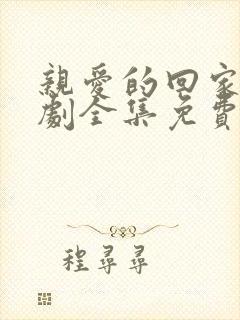 親愛的回家
劇全集免費
程尋尋